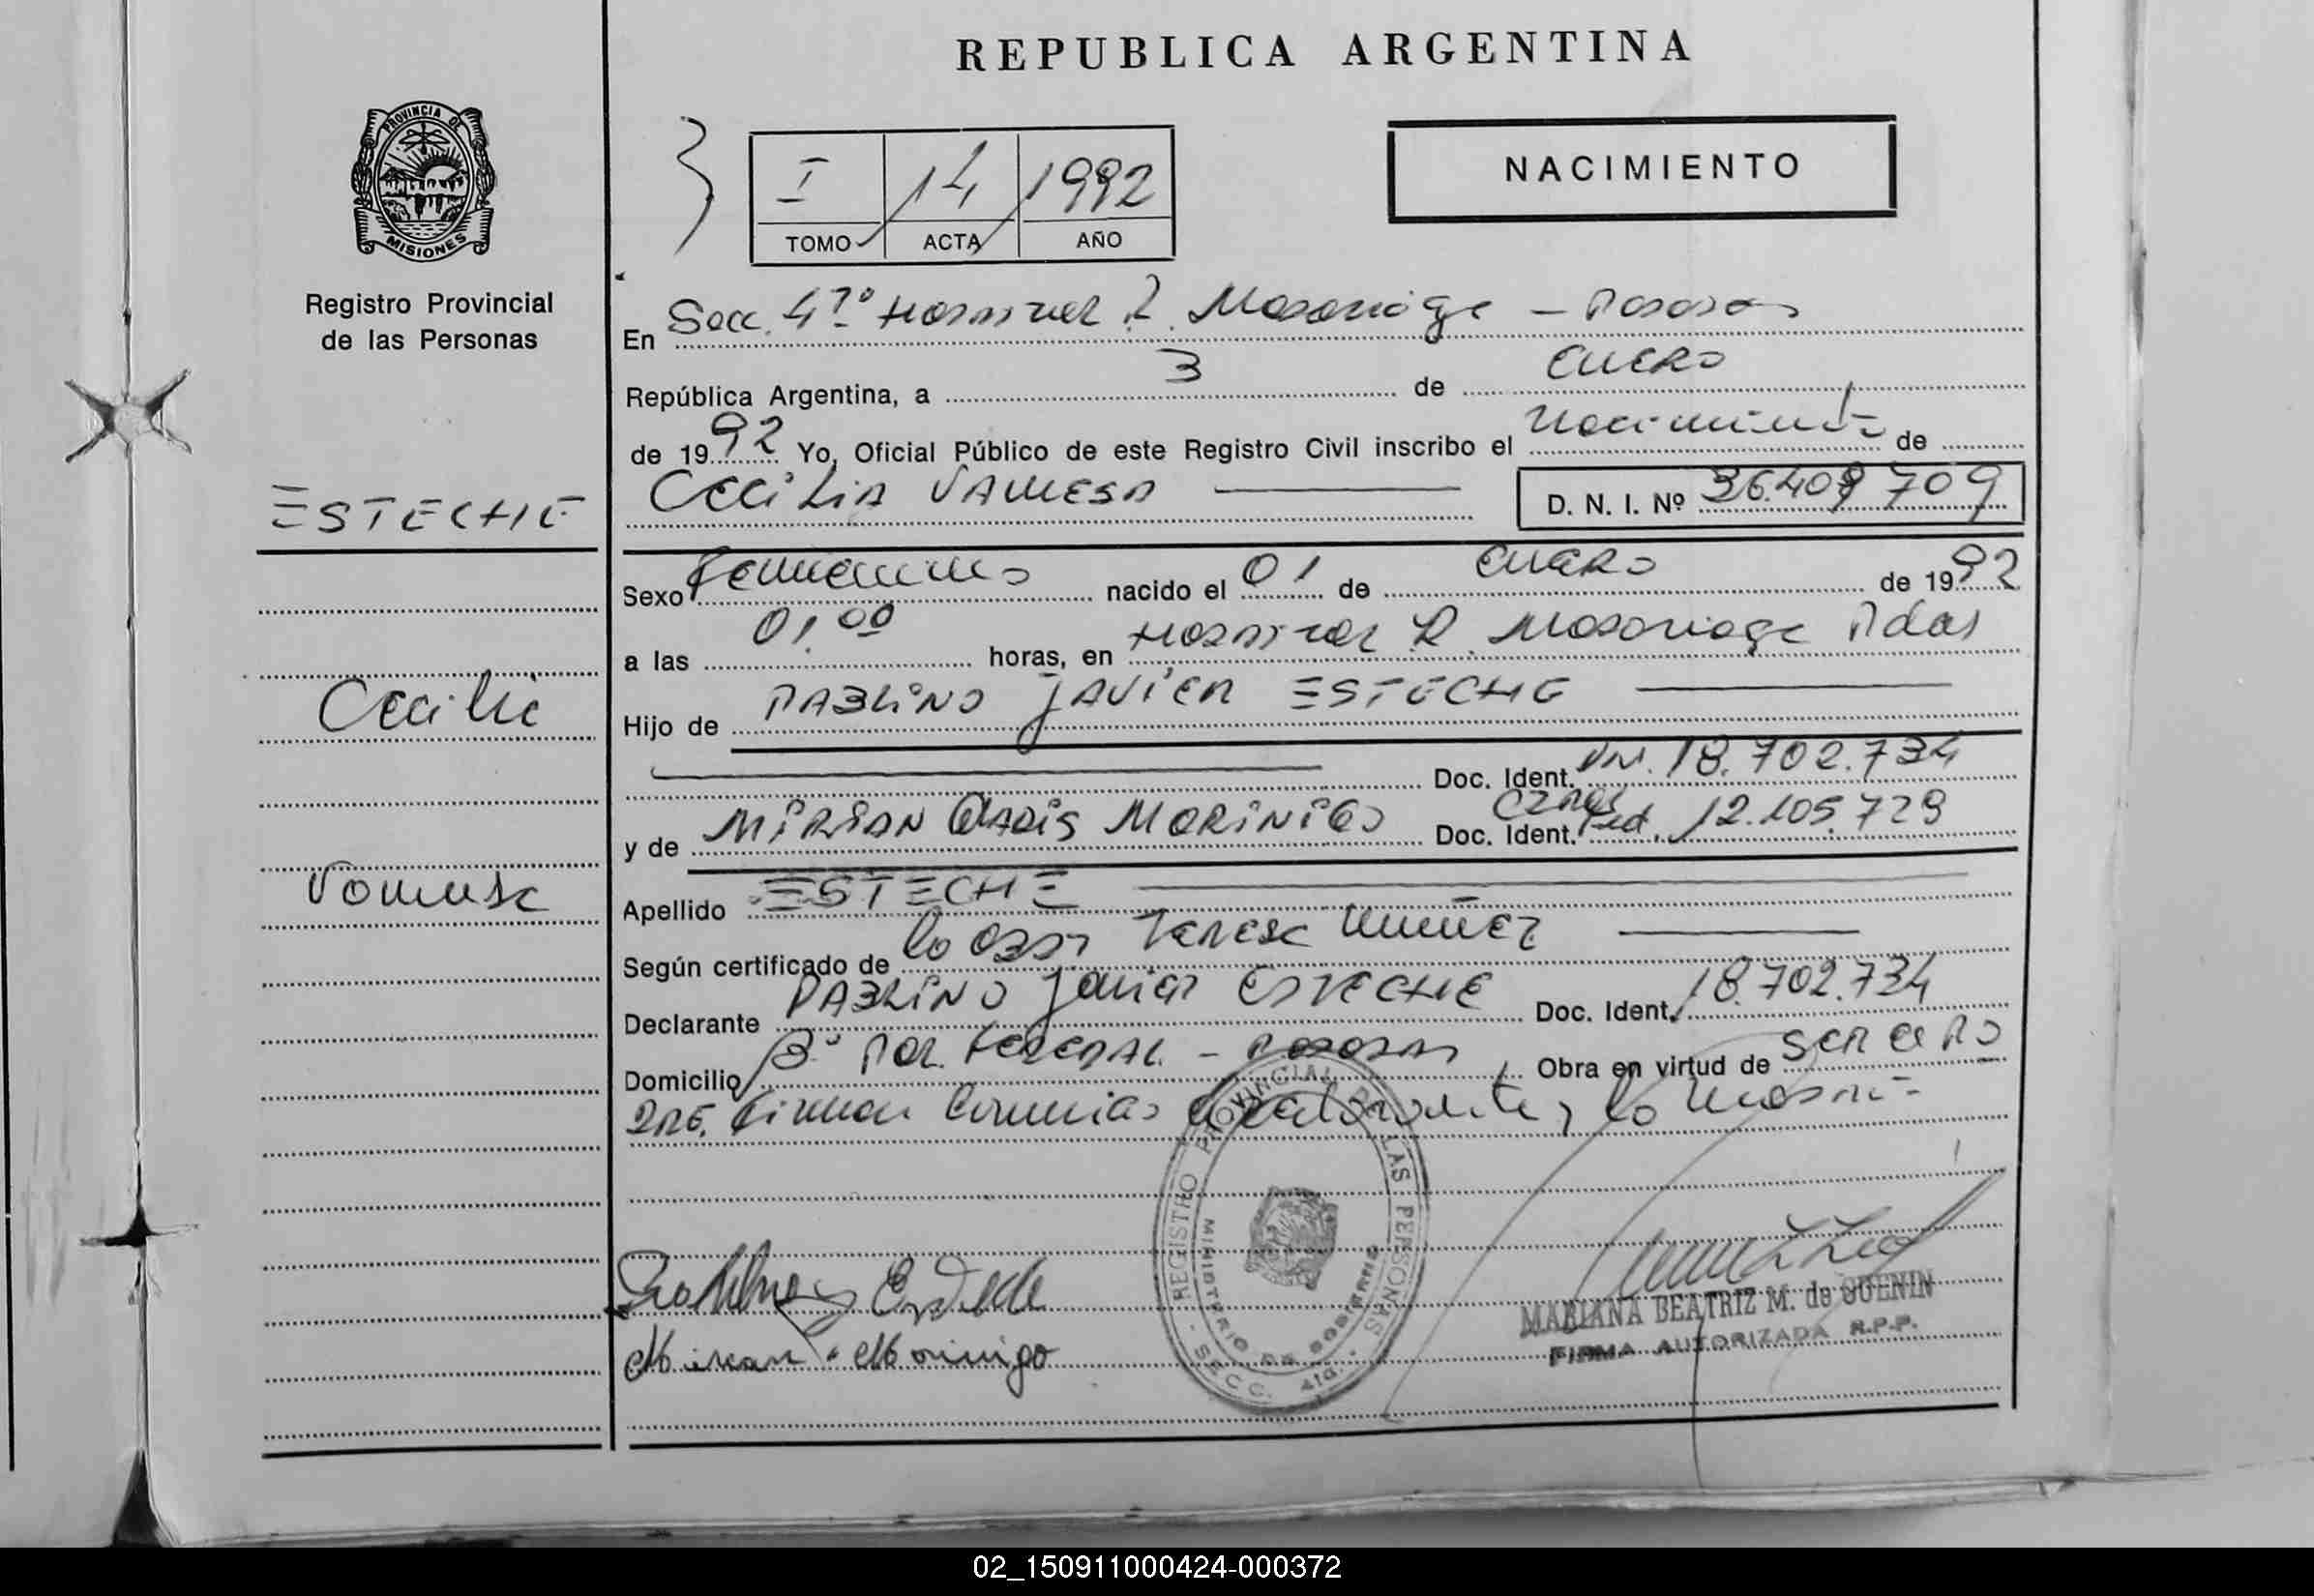 REPUBLICA ARGENTINA
PROVINCIA DE
MISIONES
Registro Provincial
de las Personas
I 14 1992
TOMO ACTA AÑO
NACIMIENTO
En Secc. 4ta Hospital R. Madariaga - Posadas
República Argentina, a 3 de Enero
de 1992 Yo, Oficial Público de este Registro Civil inscribo el Nacimiento de
CECILIA VANESA D. N. I. Nº 36.409 709
ESTECHE
Sexo Femenino nacido el 01 de Enero de 1992
a las 01.00 horas, en Hospital R. Madariaga Pdas
Cecilia
Hijo de PABLINO JAVIER ESTECHE
Doc. Ident. DNI. 18.702.734
y de MIRIAN GLADIS MORINIGO Doc. Ident. Ced. 12.105.729
Vanesa
Apellido ESTECHE
Según certificado de la Obst Teresa Nuñez
Declarante PABLINO Javier ESTECHE Doc. Ident. 18.702.734
Domicilio Bº Pol. FEDERAL - Posadas Obra en virtud de ser el PA
DRE. Firman Conmigo el declarante, y la Madre-
REGISTRO PROVINCIAL DE LAS PERSONAS
MINISTERIO DE GOBIERNO
SECC. 4ta.
Mirian Morinigo
MARIANA BEATRIZ M. de GUENIN
FIRMA AUTORIZADA R.P.P.
02_150911000424-000372